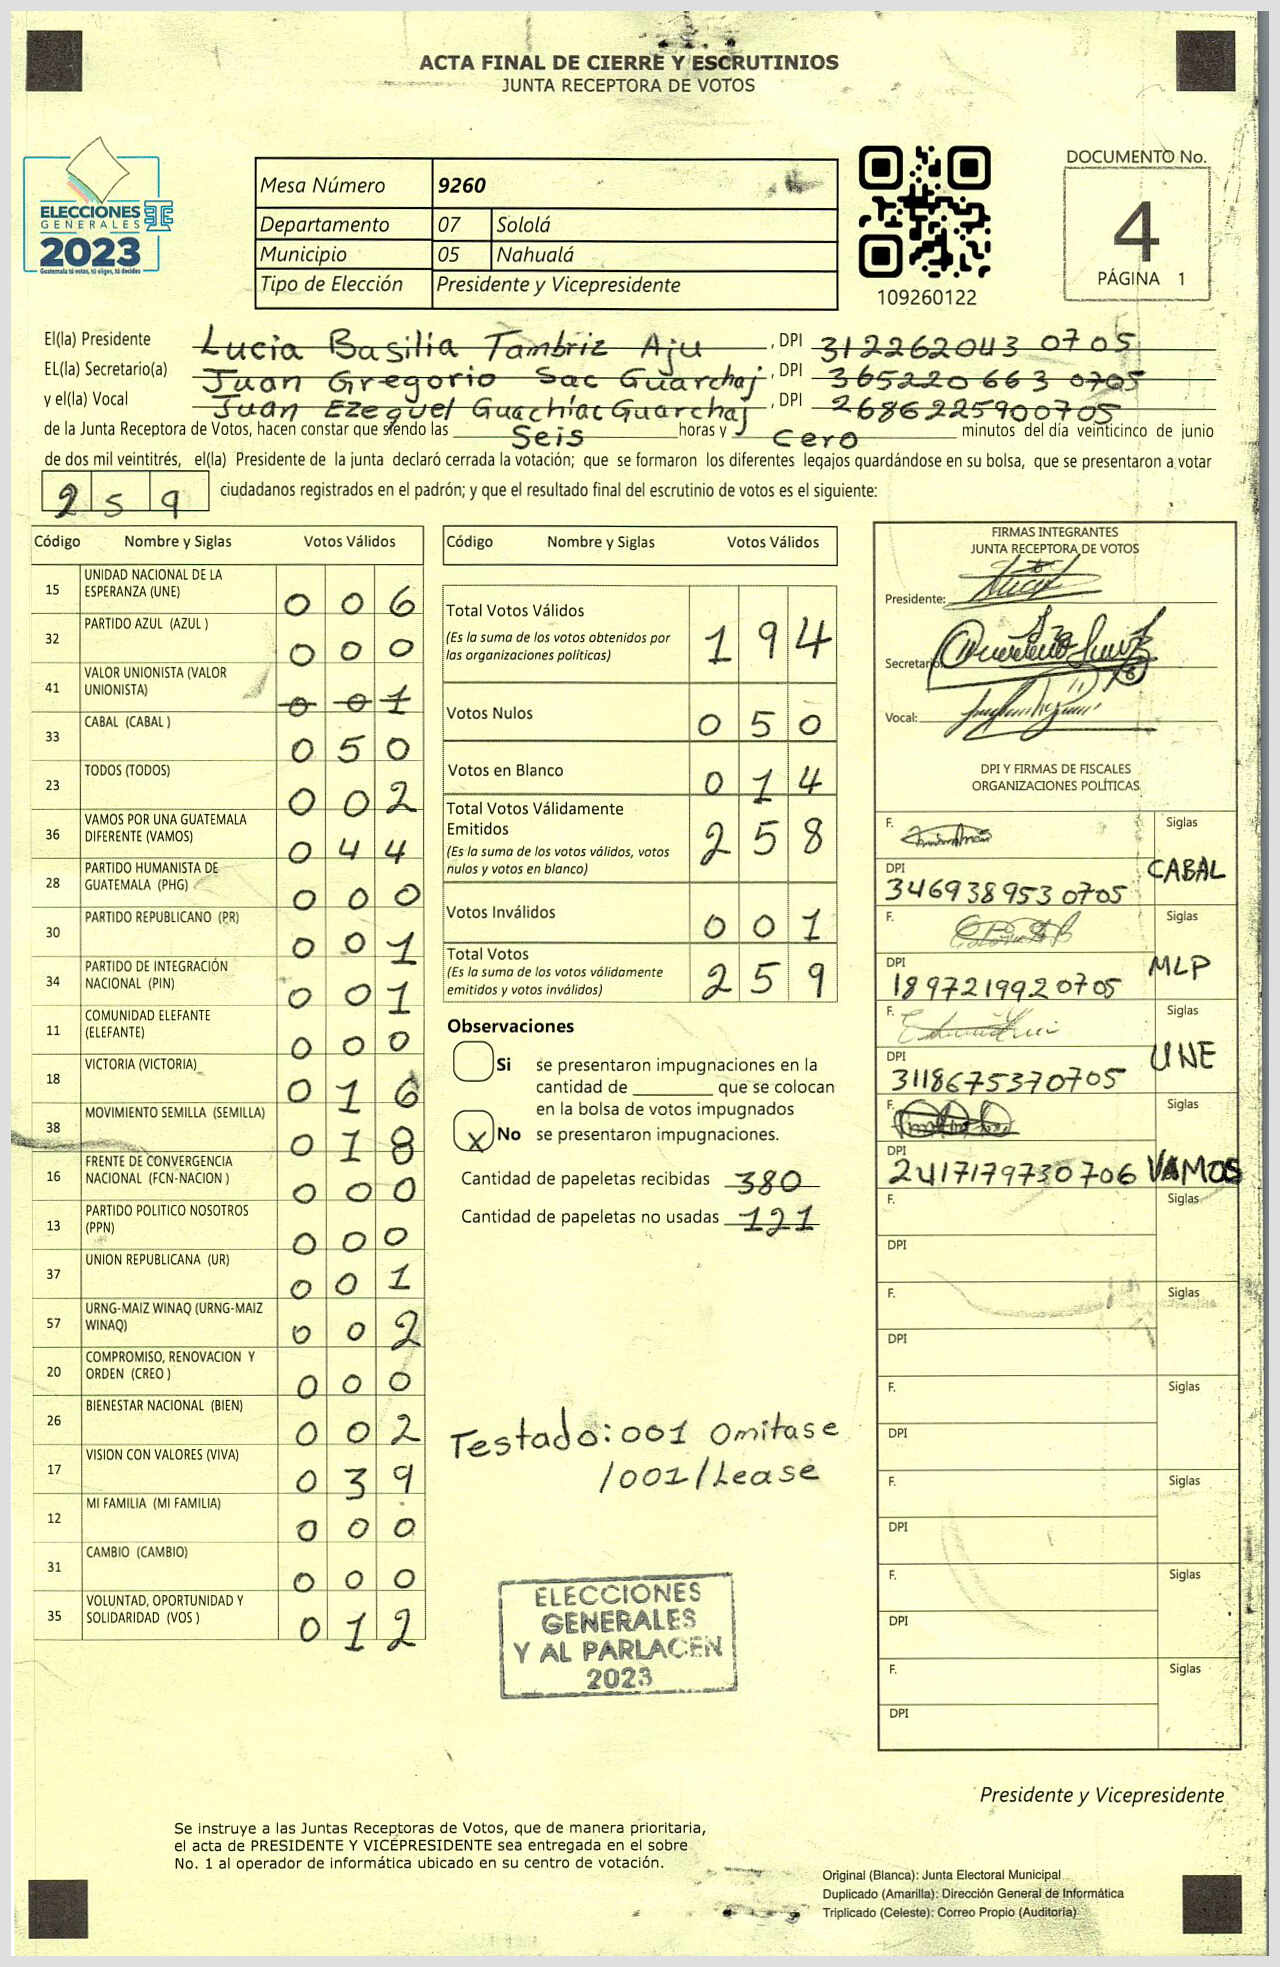 ACTA FINAL DE CIERRE Y ESCRUTINIOS
JUNTA RECEPTORA DE VOTOS
ELECCIONES
GENERALES
2023
Guatemala tú votas, tú eliges, tú decides
Mesa Número 9260
Departamento 07 Sololá
Municipio 05 Nahualá
Tipo de Elección Presidente y Vicepresidente
109260122
DOCUMENTO No.
4
PÁGINA 1
El(la) Presidente Lucia Basilia Tambriz Aju , DPI 312262043 0705
EL(la) Secretario(a) Juan Gregorio Sac Guarchaj , DPI 365220663 0705
y el(la) Vocal Juan Ezequel Guachiac Guarchaj , DPI 2686225900705
de la Junta Receptora de Votos, hacen constar que siendo las Seis horas y cero minutos del día veinticinco de junio
de dos mil veintitrés, el(la) Presidente de la junta declaró cerrada la votación; que se formaron los diferentes legajos guardándose en su bolsa, que se presentaron a votar
259 ciudadanos registrados en el padrón; y que el resultado final del escrutinio de votos es el siguiente:
Código Nombre y Siglas Votos Válidos
15 UNIDAD NACIONAL DE LA
ESPERANZA (UNE) 0 0 6
32 PARTIDO AZUL (AZUL ) 0 0 0
41 VALOR UNIONISTA (VALOR
UNIONISTA) 0 0 1
33 CABAL (CABAL ) 0 5 0
23 TODOS (TODOS) 0 0 2
36 VAMOS POR UNA GUATEMALA
DIFERENTE (VAMOS) 0 4 4
28 PARTIDO HUMANISTA DE
GUATEMALA (PHG) 0 0 0
30 PARTIDO REPUBLICANO (PR) 0 0 1
34 PARTIDO DE INTEGRACIÓN
NACIONAL (PIN) 0 0 1
11 COMUNIDAD ELEFANTE
(ELEFANTE) 0 0 0
18 VICTORIA (VICTORIA) 0 1 6
38 MOVIMIENTO SEMILLA (SEMILLA) 0 1 8
16 FRENTE DE CONVERGENCIA
NACIONAL (FCN-NACION ) 0 0 0
13 PARTIDO POLITICO NOSOTROS
(PPN) 0 0 0
37 UNION REPUBLICANA (UR) 0 0 1
57 URNG-MAIZ WINAQ (URNG-MAIZ
WINAQ) 0 0 2
20 COMPROMISO, RENOVACION Y
ORDEN (CREO ) 0 0 0
26 BIENESTAR NACIONAL (BIEN) 0 0 2
17 VISION CON VALORES (VIVA) 0 3 9
12 MI FAMILIA (MI FAMILIA) 0 0 0
31 CAMBIO (CAMBIO) 0 0 0
35 VOLUNTAD, OPORTUNIDAD Y
SOLIDARIDAD (VOS ) 0 1 2
Código Nombre y Siglas Votos Válidos
Total Votos Válidos
(Es la suma de los votos obtenidos por
las organizaciones políticas) 1 9 4
Votos Nulos 0 5 0
Votos en Blanco 0 1 4
Total Votos Válidamente
Emitidos
(Es la suma de los votos válidos, votos
nulos y votos en blanco) 2 5 8
Votos Inválidos 0 0 1
Total Votos
(Es la suma de los votos válidamente
emitidos y votos inválidos) 2 5 9
Observaciones
Si se presentaron impugnaciones en la
cantidad de ________ que se colocan
en la bolsa de votos impugnados
X No se presentaron impugnaciones.
Cantidad de papeletas recibidas 380
Cantidad de papeletas no usadas 121
Testado: 001 Omitase
/001/Lease
ELECCIONES
GENERALES
Y AL PARLACEN
2023
FIRMAS INTEGRANTES
JUNTA RECEPTORA DE VOTOS
Presidente:
Secretario
Vocal:
DPI Y FIRMAS DE FISCALES
ORGANIZACIONES POLÍTICAS
F. Siglas
DPI CABAL
3469389530705
F. Siglas
DPI MLP
1897219920705
F. Siglas
DPI UNE
3118675370705
F. Siglas
DPI
2417179730706 VAMOS
F. Siglas
DPI
F. Siglas
DPI
F. Siglas
DPI
F. Siglas
DPI
F. Siglas
DPI
F. Siglas
DPI
Presidente y Vicepresidente
Se instruye a las Juntas Receptoras de Votos, que de manera prioritaria,
el acta de PRESIDENTE Y VICEPRESIDENTE sea entregada en el sobre
No. 1 al operador de informática ubicado en su centro de votación.
Original (Blanca): Junta Electoral Municipal
Duplicado (Amarilla): Dirección General de Informática
Triplicado (Celeste): Correo Propio (Auditoria)